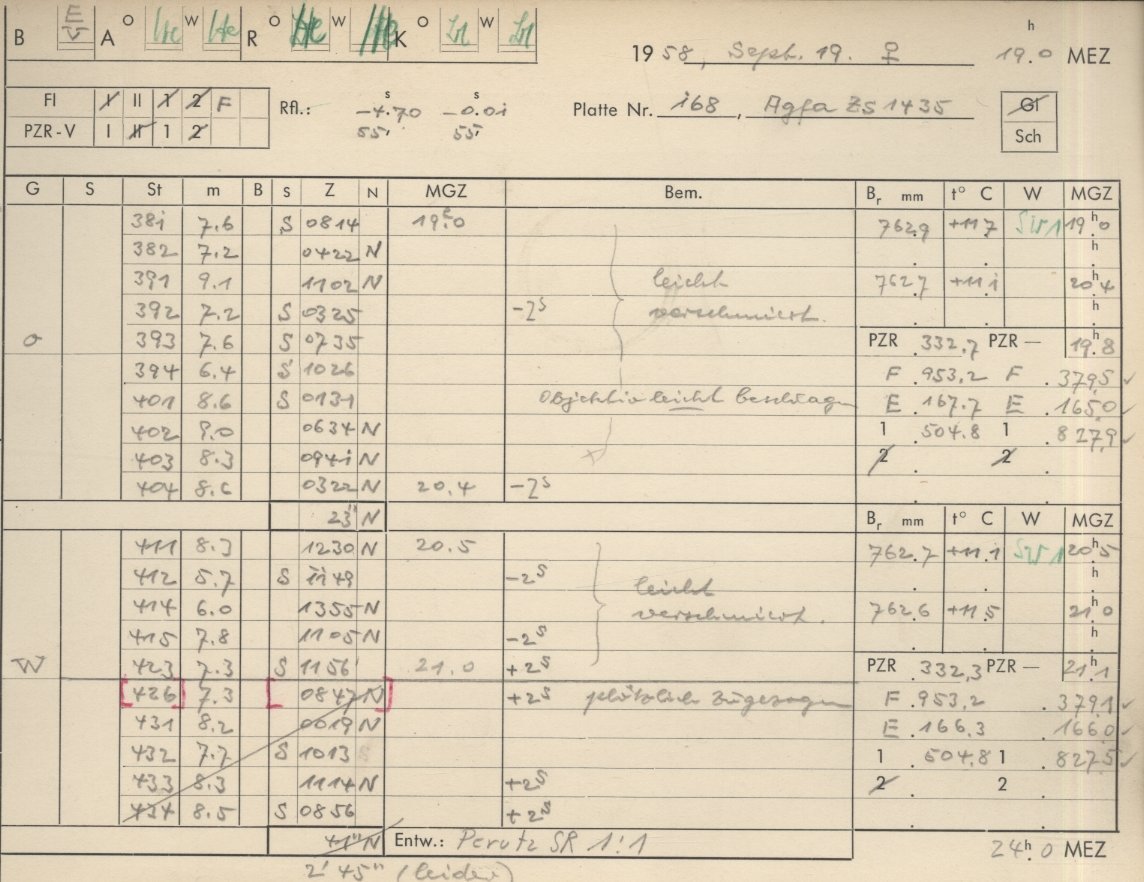 B A O W R O W K O W
19 58, Sept. 19. ♀ 19.0 h MEZ
Fl I II 1 2 F
PZR-V I II 1 2
Rfl.: -4.70 s -0.01 s
55, 55,
Platte Nr. 168, Agfa ZS 1435
Gl
Sch
G S St m B S Z N MGZ Bem. Br mm t° C W MGZ
381 7.6 S 0814 19.0 762.9 +11.7 SW 1 19 h 0
382 7.2 0422 N
391 9.1 1102 N leicht 762.7 +11.1 20 h 4
392 7.2 S 0325 -2s verschmiert.
O 393 7.6 S 0735 PZR 332.7 PZR — 19 h 8
394 6.4 S 1026 F 953.2 F 379.5 ✓
401 8.6 S 0131 Objektiv leicht beschlagen E 167.7 E 165.0 ✓
402 9.0 0634 N 1 504.8 1 827.9 ✓
403 8.3 0941 N 2 2
404 8.6 0322 N 20.4 -2s
23" N Br mm t° C W MGZ
411 8.3 1230 N 20.5 762.7 +11.1 SW 1 20 h 5
412 5.7 S 1149 -2s leicht
414 6.0 1355 N verschmiert. 762.6 +11.5 21 h 0
415 7.8 1105 N -2s
W 423 7.3 S 1156 21.0 +2s PZR 332.3 PZR — 21 h 1
[426] 7.3 [0847 N] +2s plötzlich zugezogen F 953.2 379.1 ✓
431 8.2 0619 N E 166.3 166.0 ✓
432 7.7 S 1013 1 504.8 1 827.5 ✓
433 8.3 1114 N +2s 2 2
434 8.5 S 0856 +2s
41" N Entw.: Perutz SR 1:1 24 h 0 MEZ
2' 45" (leider)